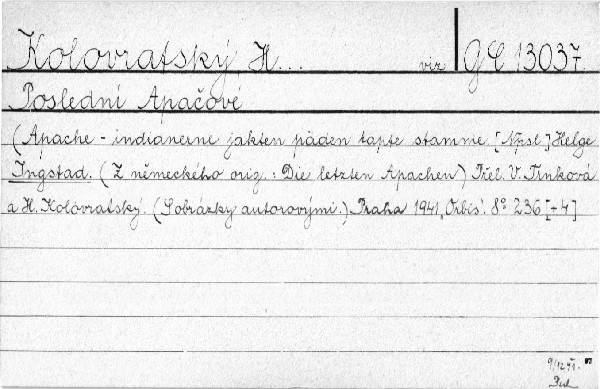 Kolovratský, H... viz GC 13037.
Poslední Apačové
(Apache - indianerne jakten päden tapte stamme. [Npsl.] Helge
Ingstad. (Z německého orig.: Die letzten Apachen) Přel. V. Trnková
a H. Kolovratský. (S obrázky autorovými.) Praha 1941, Orbis. 8° 236 [+4]